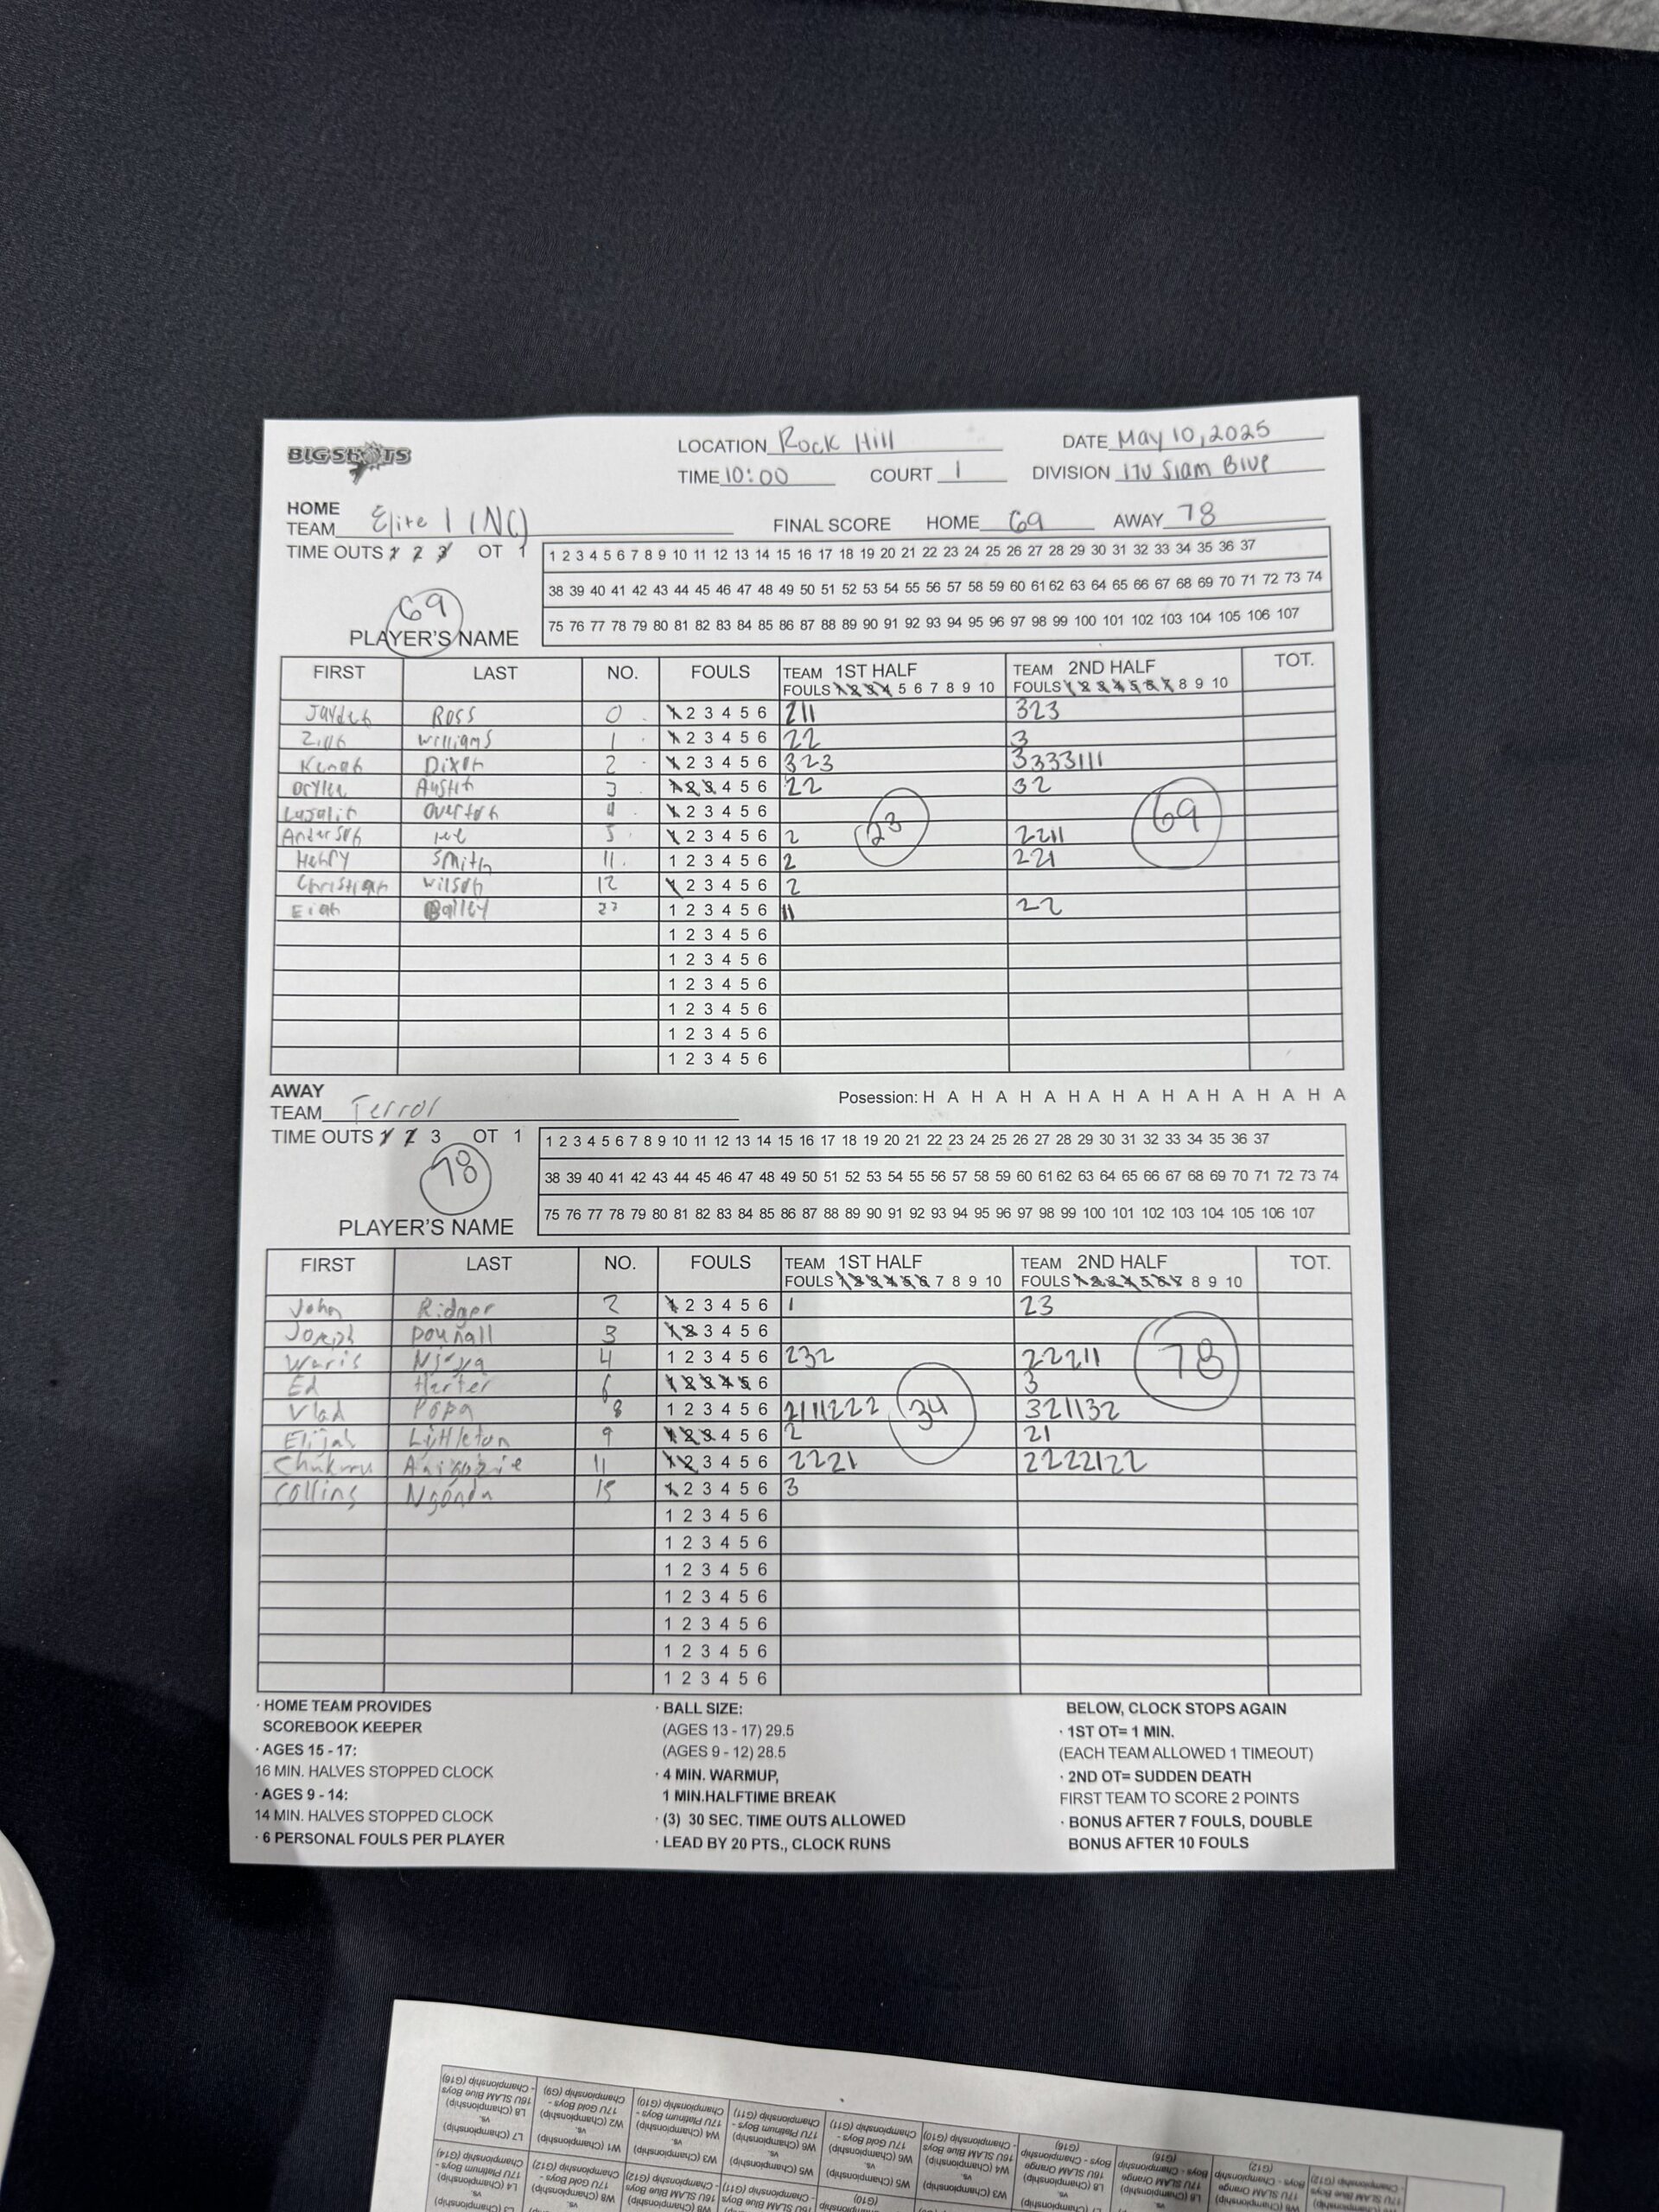 BIG SHOTS
LOCATION Rock Hill DATE May 10, 2025
TIME 10:00 COURT 1 DIVISION 17U Slam Blue
HOME
TEAM Elite 1 (NC) FINAL SCORE HOME 69 AWAY 78
TIME OUTS 1 2 3 OT 1
1 2 3 4 5 6 7 8 9 10 11 12 13 14 15 16 17 18 19 20 21 22 23 24 25 26 27 28 29 30 31 32 33 34 35 36 37
38 39 40 41 42 43 44 45 46 47 48 49 50 51 52 53 54 55 56 57 58 59 60 61 62 63 64 65 66 67 68 69 70 71 72 73 74
75 76 77 78 79 80 81 82 83 84 85 86 87 88 89 90 91 92 93 94 95 96 97 98 99 100 101 102 103 104 105 106 107
69
PLAYER'S NAME
FIRST LAST NO. FOULS TEAM 1ST HALF TEAM 2ND HALF TOT.
FOULS 1 2 3 4 5 6 7 8 9 10 FOULS 1 2 3 4 5 6 7 8 9 10
Jayden Ross 0 1 2 3 4 5 6 211 323
Williams 1 1 2 3 4 5 6 22 3
Dixon 2 1 2 3 4 5 6 323 3333111
Austin 3 1 2 3 4 5 6 22 32
Overton 4 1 2 3 4 5 6
Anderson 5 1 2 3 4 5 6 2 2211
Henry Smith 11 1 2 3 4 5 6 2 221
Christian Wilson 12 1 2 3 4 5 6 2
Bailey 1 2 3 4 5 6 11 22
23
69
1 2 3 4 5 6
1 2 3 4 5 6
1 2 3 4 5 6
1 2 3 4 5 6
1 2 3 4 5 6
1 2 3 4 5 6
AWAY
TEAM Terror Posession: H A H A H A H A H A H A H A H A H A
TIME OUTS 1 2 3 OT 1
1 2 3 4 5 6 7 8 9 10 11 12 13 14 15 16 17 18 19 20 21 22 23 24 25 26 27 28 29 30 31 32 33 34 35 36 37
38 39 40 41 42 43 44 45 46 47 48 49 50 51 52 53 54 55 56 57 58 59 60 61 62 63 64 65 66 67 68 69 70 71 72 73 74
75 76 77 78 79 80 81 82 83 84 85 86 87 88 89 90 91 92 93 94 95 96 97 98 99 100 101 102 103 104 105 106 107
78
PLAYER'S NAME
FIRST LAST NO. FOULS TEAM 1ST HALF TEAM 2ND HALF TOT.
FOULS 1 2 3 4 5 6 7 8 9 10 FOULS 1 2 3 4 5 6 7 8 9 10
John Ridger 2 1 2 3 4 5 6 1 23
Joseph Pounall 3 1 2 3 4 5 6
Waris 4 1 2 3 4 5 6 232 22211
Ed Harter 6 1 2 3 4 5 6 3
Vlad Popa 8 1 2 3 4 5 6 2111222 321132
Elijah Littleton 9 1 2 3 4 5 6 2 21
11 1 2 3 4 5 6 2221 2222122
Collins Ngonda 15 1 2 3 4 5 6 3
34
78
1 2 3 4 5 6
1 2 3 4 5 6
1 2 3 4 5 6
1 2 3 4 5 6
1 2 3 4 5 6
1 2 3 4 5 6
1 2 3 4 5 6
· HOME TEAM PROVIDES
SCOREBOOK KEEPER
· AGES 15 - 17:
16 MIN. HALVES STOPPED CLOCK
· AGES 9 - 14:
14 MIN. HALVES STOPPED CLOCK
· 6 PERSONAL FOULS PER PLAYER
· BALL SIZE:
(AGES 13 - 17) 29.5
(AGES 9 - 12) 28.5
· 4 MIN. WARMUP,
1 MIN.HALFTIME BREAK
· (3) 30 SEC. TIME OUTS ALLOWED
· LEAD BY 20 PTS., CLOCK RUNS
BELOW, CLOCK STOPS AGAIN
· 1ST OT= 1 MIN.
(EACH TEAM ALLOWED 1 TIMEOUT)
· 2ND OT= SUDDEN DEATH
FIRST TEAM TO SCORE 2 POINTS
· BONUS AFTER 7 FOULS, DOUBLE
BONUS AFTER 10 FOULS